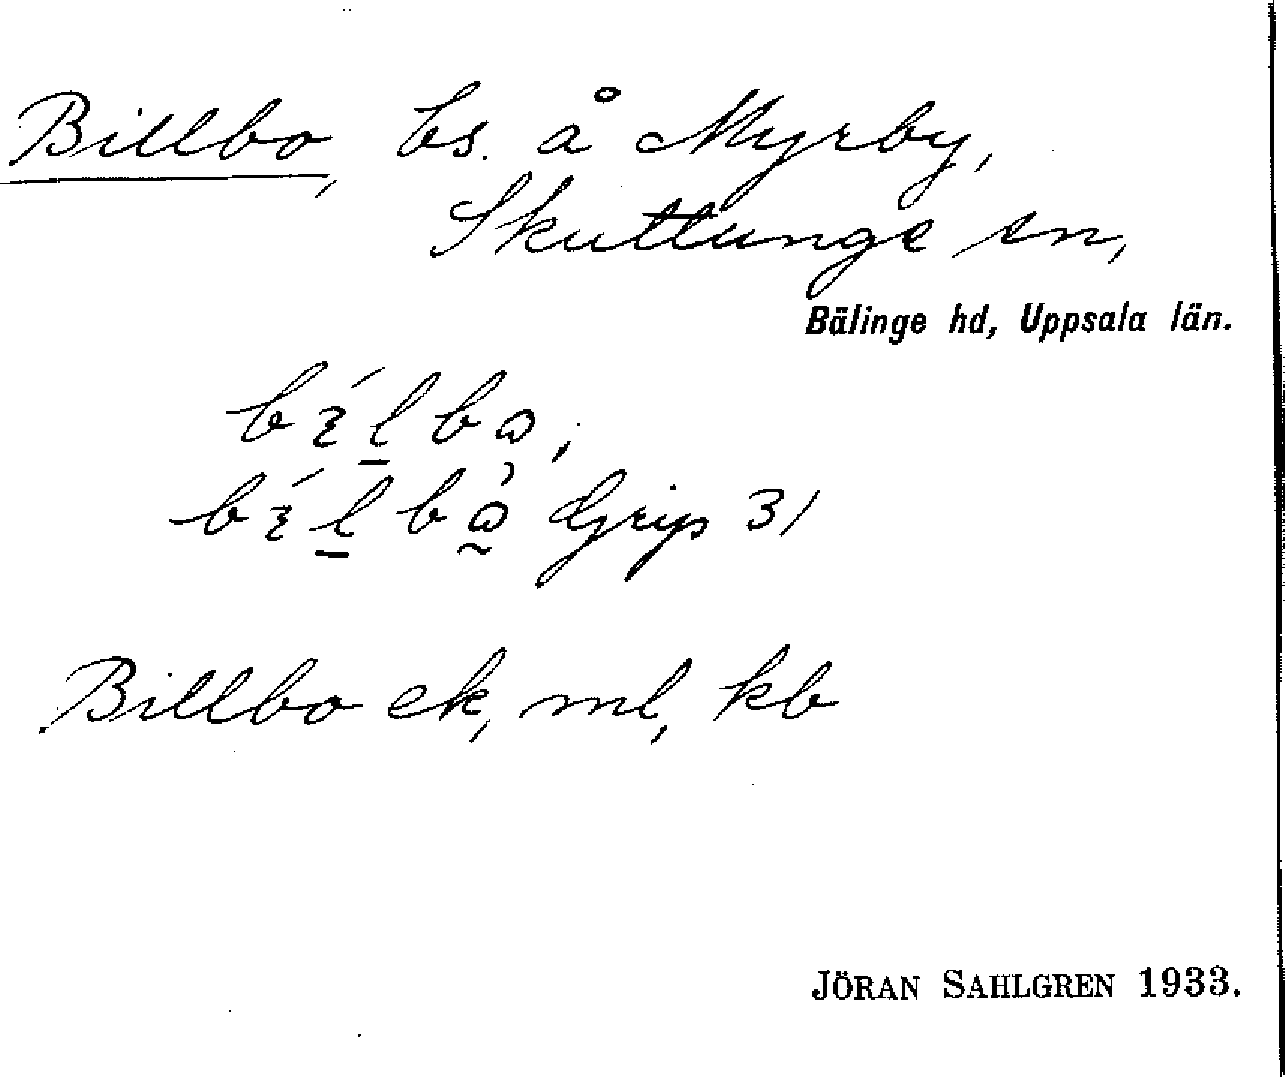 Billbo, bs. å Myrby,
Skuttunge sn,
Bälinge hd, Uppsala län.
Grip 31
Billbo ek, ml, kb
JÖRAN SAHLGREN 1933.